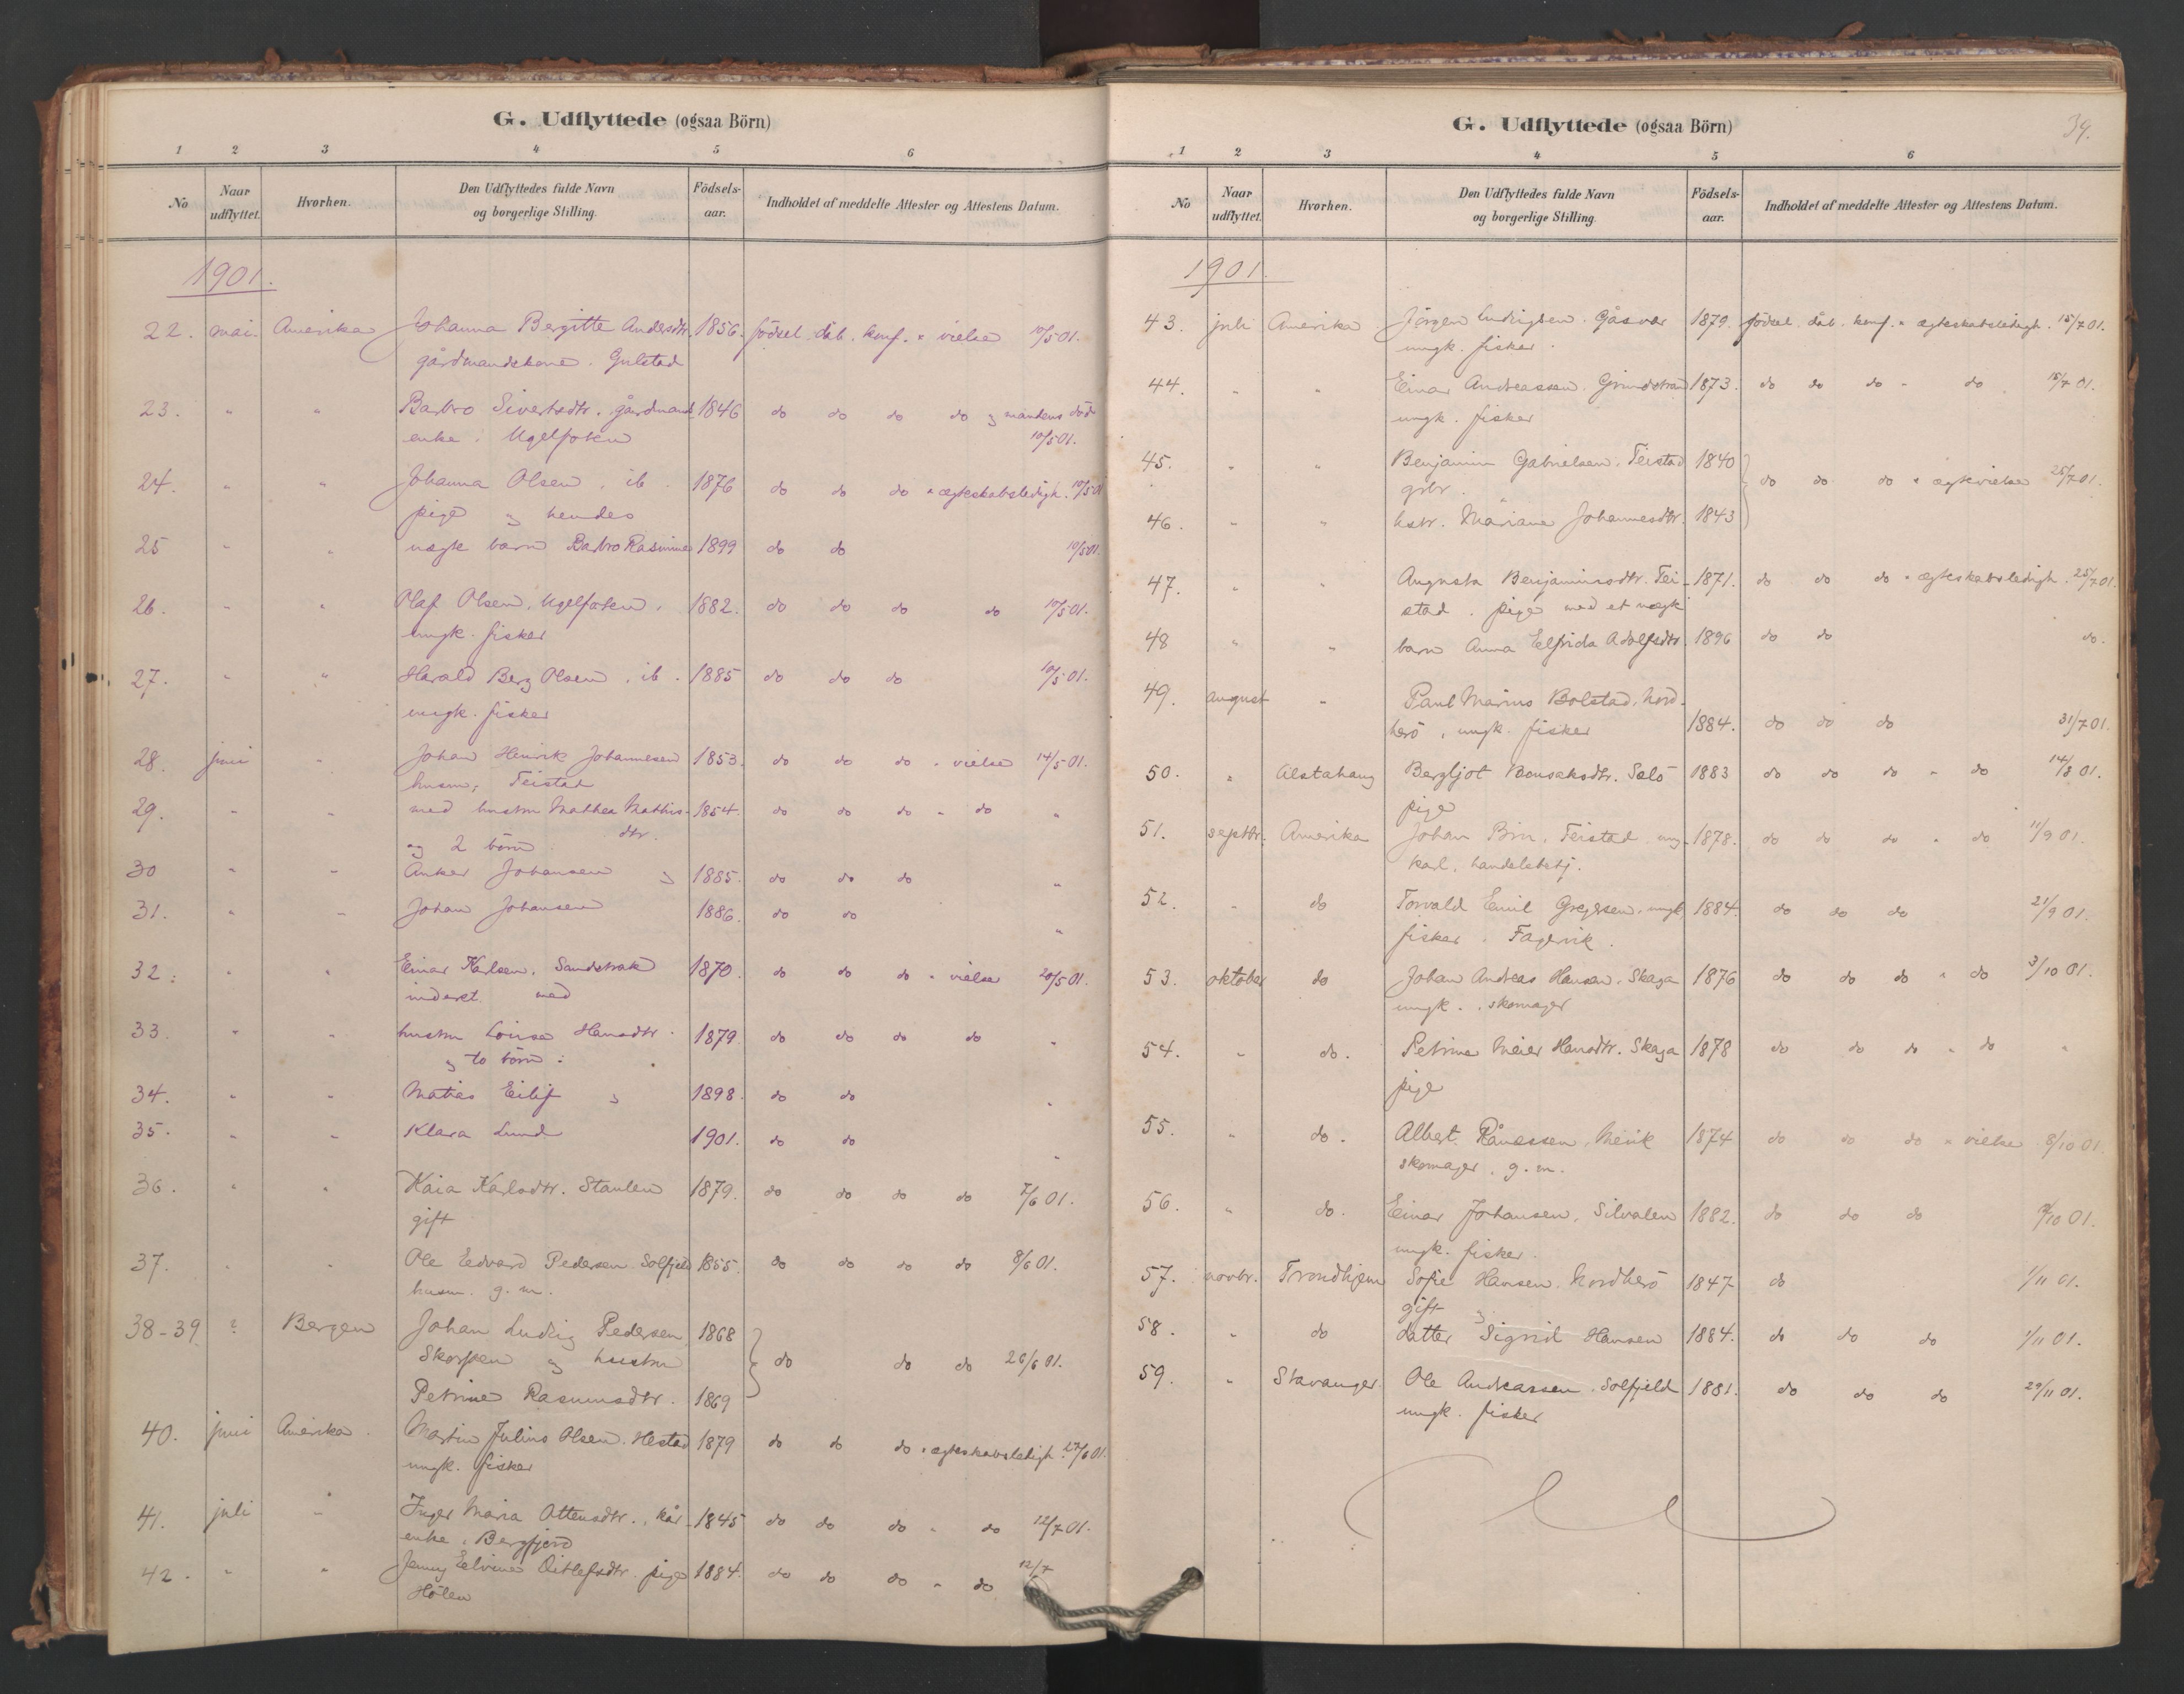 G. Udflyttede (ogsaa Börn)
1 2 3 4 5 6
No Naar udflyttet. Hvorhen. Den Udflyttedes fulde Navn og borgerlige Stilling. Födsels-aar. Indholdet af meddelte Attester og Attestens Datum.
1901.
22. mai. Amerika Johanna Bergitte Andersdtr. 1856. födsel. dåb. konf. " vielse 10/5 01.
gårdmandskone. Gulstad
23. " " Barbro Sivertsdtr. gårdmands 1846 do do do do og mandens död
enke. Ugelfoten 10/5 01.
24. " " Johanna Olsen. ib. 1876 do do do " ægteskabsledigh. 10/5 01
pige og hendes
25 " " uægte barn Barbro Rasmine 1899 do do 10/5 01.
26. " " Olaf Olsen. Ugelfoten. 1882. do do do do 10/5 01.
ungk. fisker
27. " " Harald Berg Olsen. ib. 1885 do do do 10/5 01.
ungk. fisker
28. juni " Johan Henrik Johannesen 1853. do do do " vielse 14/5 01.
husm; Teistad
29. " " med hustru Mathea Mathis- 1854. do do do " do "
og 2 börn dtr.
30 " " Anker Johansen og 1885. do do do "
31. " " Johan Johansen 1886. do do "
32. " " Einar Karlsen. Sandstrak 1870. do do do " vielse 20/5 01.
inderst. med
33. " " hustru Lovise Hansdtr. 1879. do do do do "
og to börn:
34. " " Matias Eilif og 1898. do do "
35. " " Klara Lund 1901. do do "
36. " " Kaia Karlsdtr. Staulen 1879. do do do do 7/6 01.
gift
37. " " Ole Edvard Pedersen Solfjeld 1855. do do do do 8/6 01.
husm. g. m.
38-39 ? Bergen Johan Ludvig Pedersen, 1868
Skorpen og hustru do do do 26/6 01.
Petrine Rasmusdtr. 1869
40. juni Amerika. Martin Julius Olsen. Hestad 1879 do do do " ægteskabsledigh. 27/6 01.
ungk. fisker
41. juli " Inger Maria Ottensdtr., kår- 1845 do do do " do 12/7 01.
enke. Bergfjord
42. " " Jenny Elvine Ditlefsdtr. pige 1884. do do do " do 12/7
Hölen
G. Udflyttede (ogsaa Börn) 39.
1 2 3 4 5 6
No Naar udflyttet. Hvorhen. Den Udflyttedes fulde Navn og borgerlige Stilling. Födsels-aar. Indholdet af meddelte Attester og Attestens Datum.
1901.
43. juli Amerika Jörgen Ludvigsen. Gåsvær 1879. födsel. dåb. konf. " ægteskabsledigh. 15/7 01.
ungk. fisker.
44. " " Einar Andreassen. Grindstrand 1873. do do do " do 15/7 01.
ungk. fisker
45. " " Benjamin Gabrielsen. Teistad 1840 do do do " ægtevielse 25/7 01.
grbr.
46. " " hstr. Mariane Johannesdtr. 1843
47. " " Augusta Benjaminsdtr. Tei- 1871. do do do " ægteskabsledigh. 25/7 01.
stad. pige med et uægte
48 " " barn Anna Elfrida Adolfsdtr. 1896 do do do.
49. august " Paul Marius Bolstad, Nord-
herö, ungk. fisker 1884. do do do 31/7 01.
50. " Alstahaug Bergljot Bonsaksdtr. Salö 1883 do do do " do 14/8 01.
pige
51. septbr. Amerika Johan Brn. Teistad. ung- 1878. do do do " do 11/9 01.
karl. handelsbetj.
52. " do Torvald Emil Gregersen. ungk. 1884. do do do 21/9 01.
fisker. Fagervik.
53. oktober do Johan Andreas Hansen. Skaga 1876 do do do " do 3/10 01.
ungk. skomager
54. " do. Petrine Meier Hansdtr. Skaga 1878 do do do " do "
pige
55. " do. Albert Rånessen, Mevik 1874 do do do " vielse 8/10 01
skomager. g. m.
56. " do. Einar Johansen. Silvalen 1882. do do do 9/10 01.
ungk. fisker.
57. novbr. Trondhjem Sofie Hansen. Nordherö 1847 do 1/11 01.
gift og
58. " do datter Sigrid Hansen 1884. do do do 1/11 01.
59. " Stavanger. Ole Andreassen. Solfjeld 1881. do do do 29/11 01.
ungk. fisker